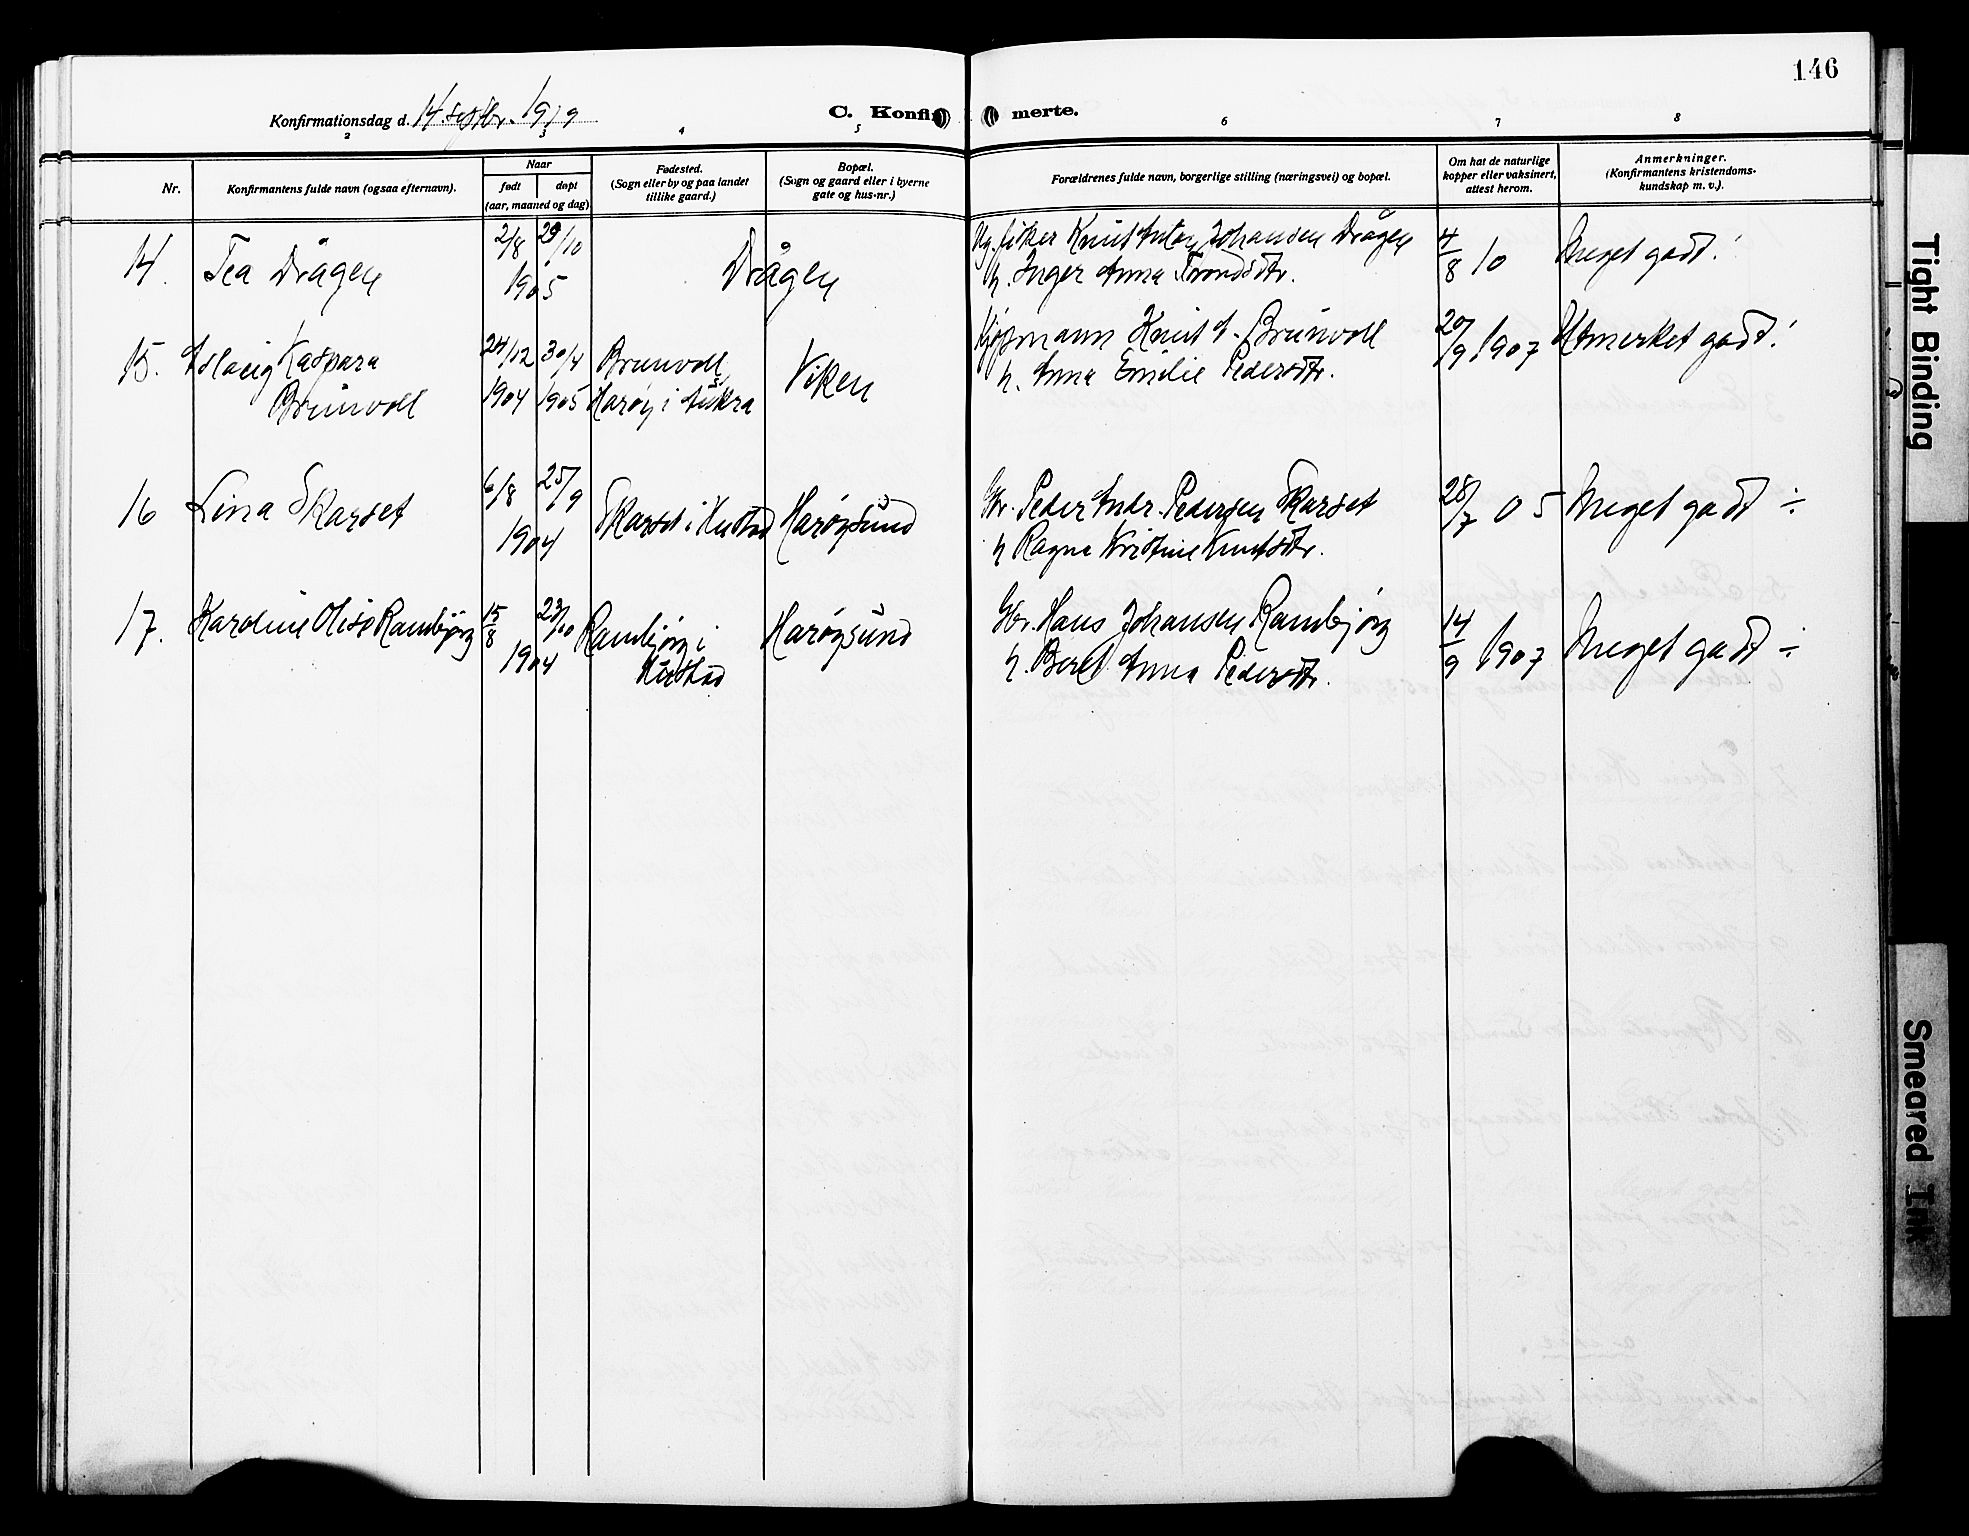 146
Konfirmationsdag d. 14. septbr. 1919
C. Konfir merte.
2 3 4 5 6 7 8
Nr.
Konfirmantens fulde navn (ogsaa efternavn).
Naar
født døpt
(aar, maaned og dag)
Fødested.
(Sogn eller by og paa landet
tillike gaard.)
Bopæl.
(Sogn og gaard eller i byerne
gate og hus-nr.)
Forældrenes fulde navn, borgerlige stilling (næringsvei) og bopæl.
Om hat de naturlige
kopper eller vaksinert,
attest herom.
Anmerkninger.
(Konfirmantens kristendoms-
kundskap m. v.).
14. Tea Drågen 2/8 29/10 1905 Drågen
fisker Knut Anton Johansen Drågen
h. Inger Anna Trondsdtr.
4/8 10 Meget godt.
15. Aslaug Kaspara
Brunvoll
24/12 1904 30/4 1905
Brunvoll,
Harøy i Aukra
Viken
Kjøpmann Knut A. Brunvoll
h. Anna Emilie Pedersdtr.
20/9 1907 Utmerket godt!
16 Lina Skarset 6/8 25/9 1904 Skarset i Hustad Harøysund
Gbr. Peder Andr. Pedersen Skarset
h Ragna Kristine Knutsdtr.
28/7 05 Meget godt ÷
17. Karoline Olise Rambjørg 15/8 23/10 1904
Rambjørg i
Hustad
Harøysund
Gbr. Hans Johansen Rambjørg
h. Beret Anna Pedersdtr.
14/9 1907 Meget godt ÷
Tight Binding
Smeared Ink